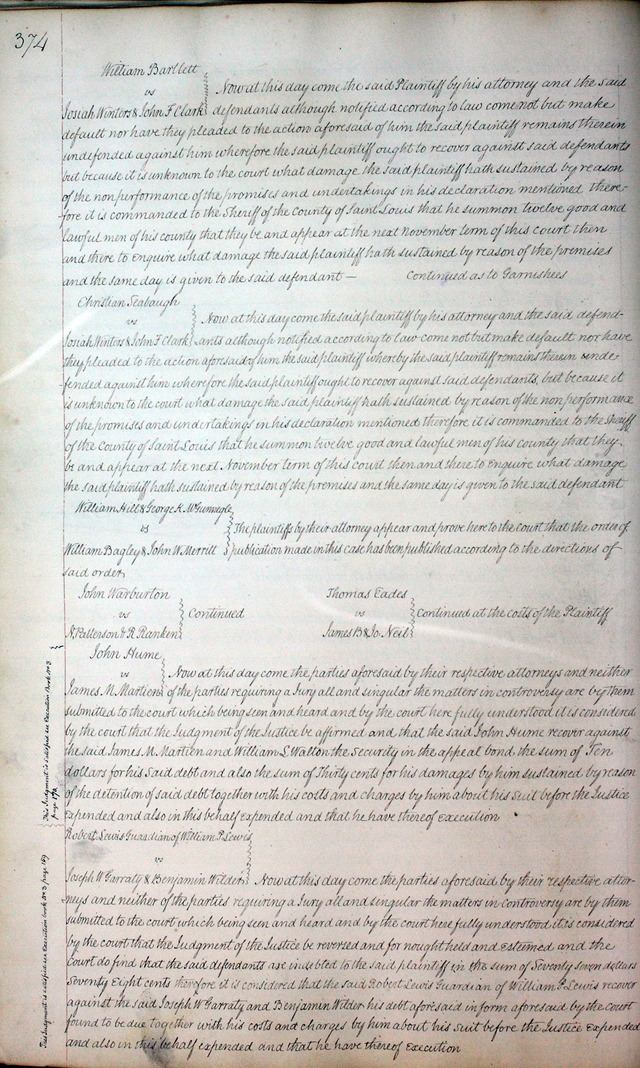 374
William Bartlett
vs
Josiah Winters & John F Clark
Now at this day come the said Plaintiff by his attorney and the said
defendants although notified according to law come not but make
default nor have they pleaded to the action aforesaid of him the said plaintiff remains therein
undefended against him wherefore the said plaintiff ought to recover against said defendants
but because it is unknown to the court what damage the said plaintiff hath sustained by reason
of the nonperformance of the promises and undertakings in his declaration mentioned there-
fore it is commanded to the Sheriff of the County of Saint Louis that he summon twelve good and
lawful men of his county that they be and appear at the next November term of this court then
and there to Enquire what damage the said plaintiff hath sustained by reason of the premises
and the same day is given to the said defendant — Continued as to Garnishees
Christian Seabaugh
vs
Josiah Winters & John F Clark
Now at this day come the said plaintiff by his attorney and the said defend-
-ants although notified according to law come not but make default nor have
they pleaded to the action aforesaid of him the said plaintiff whereby the said plaintiff remains therein unde-
fended against him wherefore the said plaintiff ought to recover against said defendants, but because it
is unknown to the court what damage the said plaintiff hath sustained by reason of the non performance
of the promises and undertakings in his declaration mentioned therefore it is commanded to the Sheriff
of the County of Saint Louis that he summon twelve good and lawful men of his county that they
be and appear at the next November term of this court then and there to Enquire what damage
the said plaintiff hath sustained by reason of the premises and the same day is given to the said defendant
William Hill & George K.
vs
William Bagley & John W Merrill
The plaintiffs by their attorney appear and prove here to the court that the order of
publication made in this case has been published according to the directions of
said order,
John Warburton
vs
N Patterson & R Ranken
Continued
Thomas Eades
vs
James B & Jo. Neil
Continued at the costs of the Plaintiff
John Hume
vs
James M. Martien
Now at this day come the parties aforesaid by their respective attorneys and neither
of the parties requiring a Jury all and singular the matters in controversy are by them
submitted to the court which being seen and heard and by the court here fully understood it is considered
by the court that the Judgment of the Justice be affirmed and that the said John Hume recover against
the said James M. Martien and William L Walton the Security in the appeal bond the sum of Ten
dollars for his said debt and also the sum of Thirty cents for his damages by him sustained by reason
of the detention of said debt together with his costs and charges by him about his suit before the Justice
Expended and also in this behalf expended and that he have thereof Execution
This Judgment is satisfied see Execution Book No 3
page
Robert Lewis Guardian of William P Lewis
vs
Joseph W Garraty & Benjamin Wilder
Now at this day come the parties aforesaid by their respective attor-
neys and neither of the parties requiring a Jury all and singular the matters in controversy are by them
submitted to the court which being seen and heard and by the court here fully understood it is considered
by the court that the Judgment of the Justice be reversed and for nought held and Esteemed and the
Court do find that the said defendants are indebted to the said plaintiff in the sum of Seventy seven dollars
Seventy Eight cents therefore it is considered that the said Robert Lewis Guardian of William P Lewis recover
against the said Joseph W Garraty and Benjamin Wilder his debt aforesaid in form aforesaid by the court
found to be due together with his costs and charges by him about his suit before the Justice Expended
and also in this behalf expended and that he have thereof Execution
This Judgment is satisfied see Execution book No 3 page 169